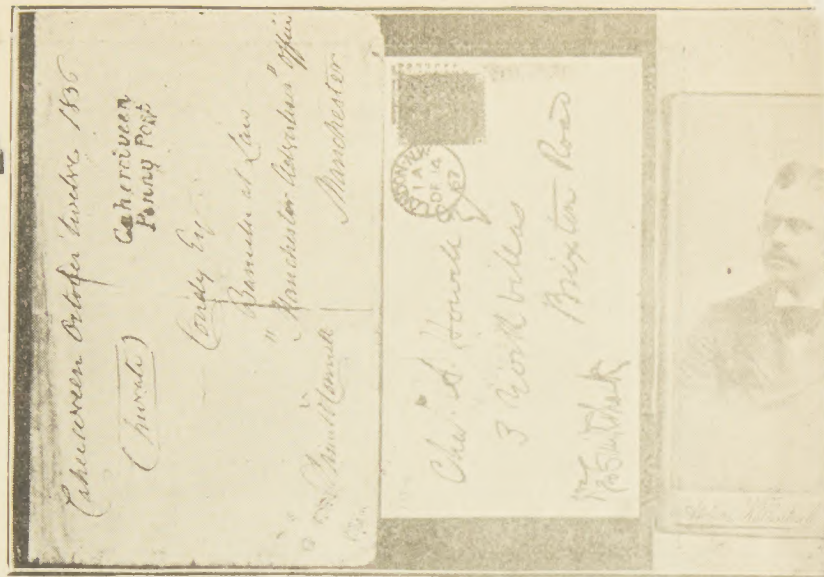 Caherciveen October twelve 1836
Caherciveen
Penny Post
(Private)
Condy Esq
Barrister at Law
"Manchester Advertiser" Office
Manchester
LONDON
1 A
DE 14
67
Chas. A. Howell
3 York Villas
Brixton Road